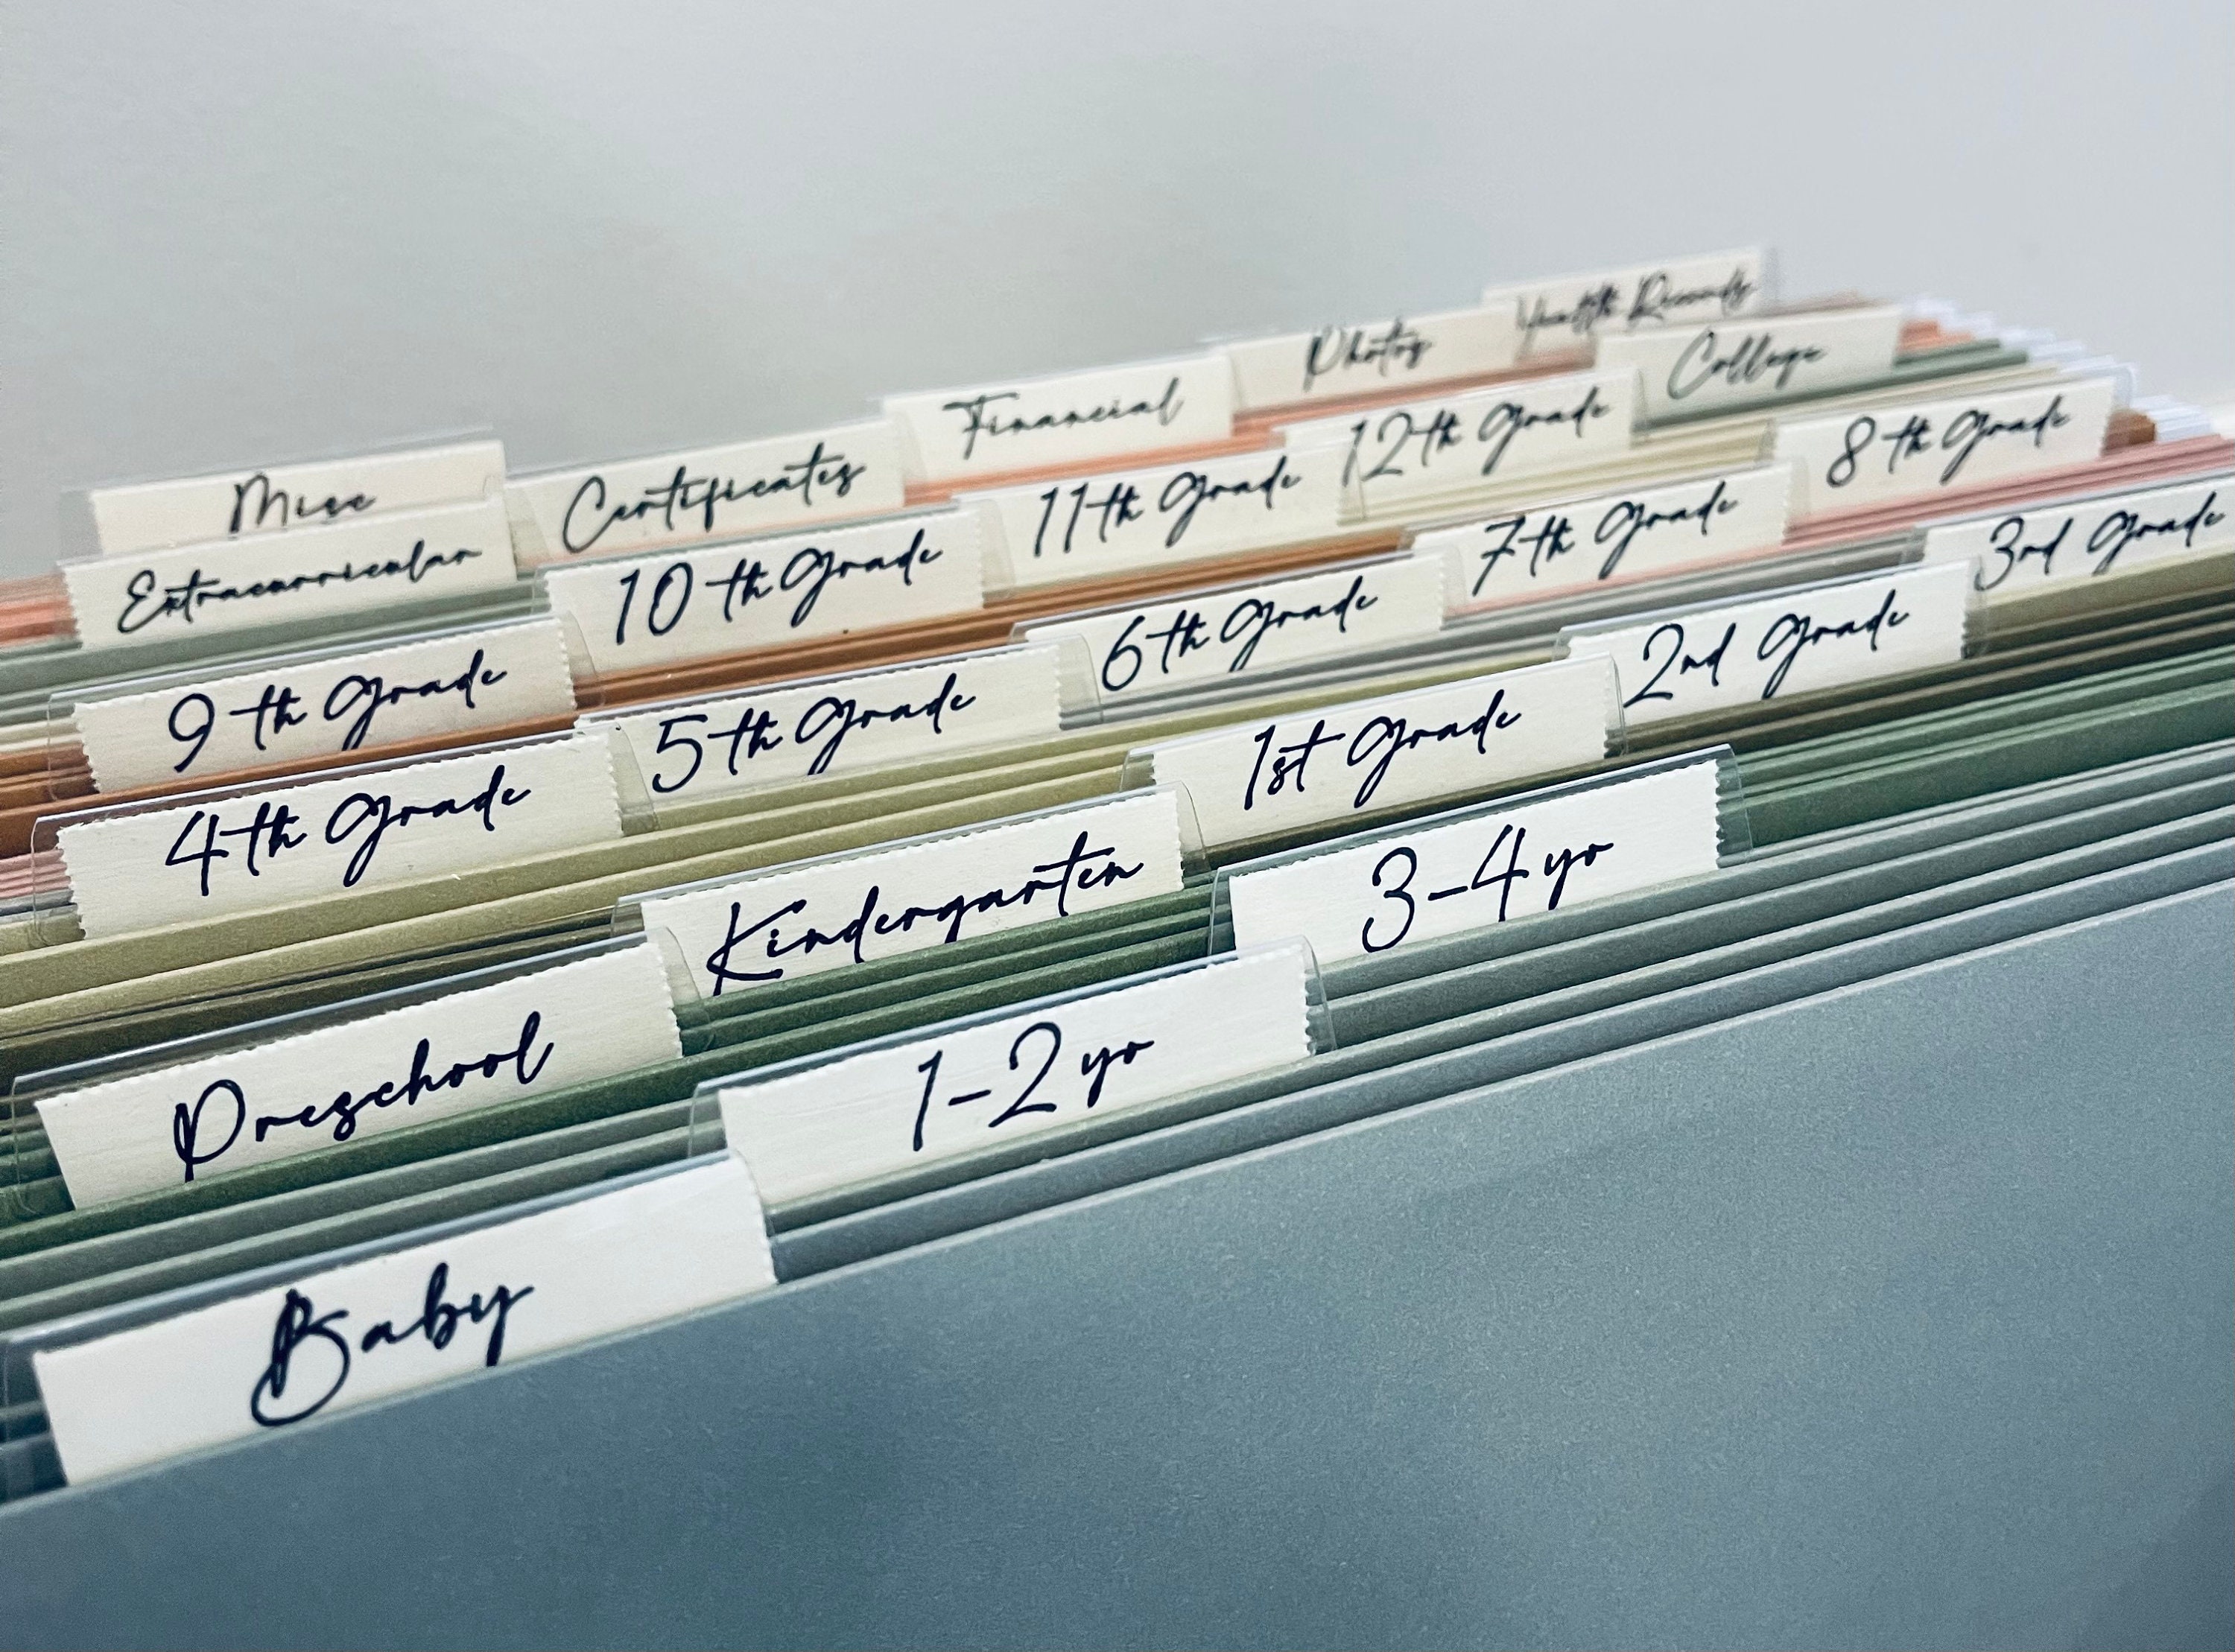 Baby
1-2 yo
3-4 yo
Preschool
Kindergarten
1st Grade
2nd Grade
3rd Grade
4th Grade
5th Grade
6th Grade
7th Grade
8th Grade
9th Grade
10th Grade
11th Grade
12th Grade
College
Extracurricular
Misc
Certificates
Financial
Photos
Health Records